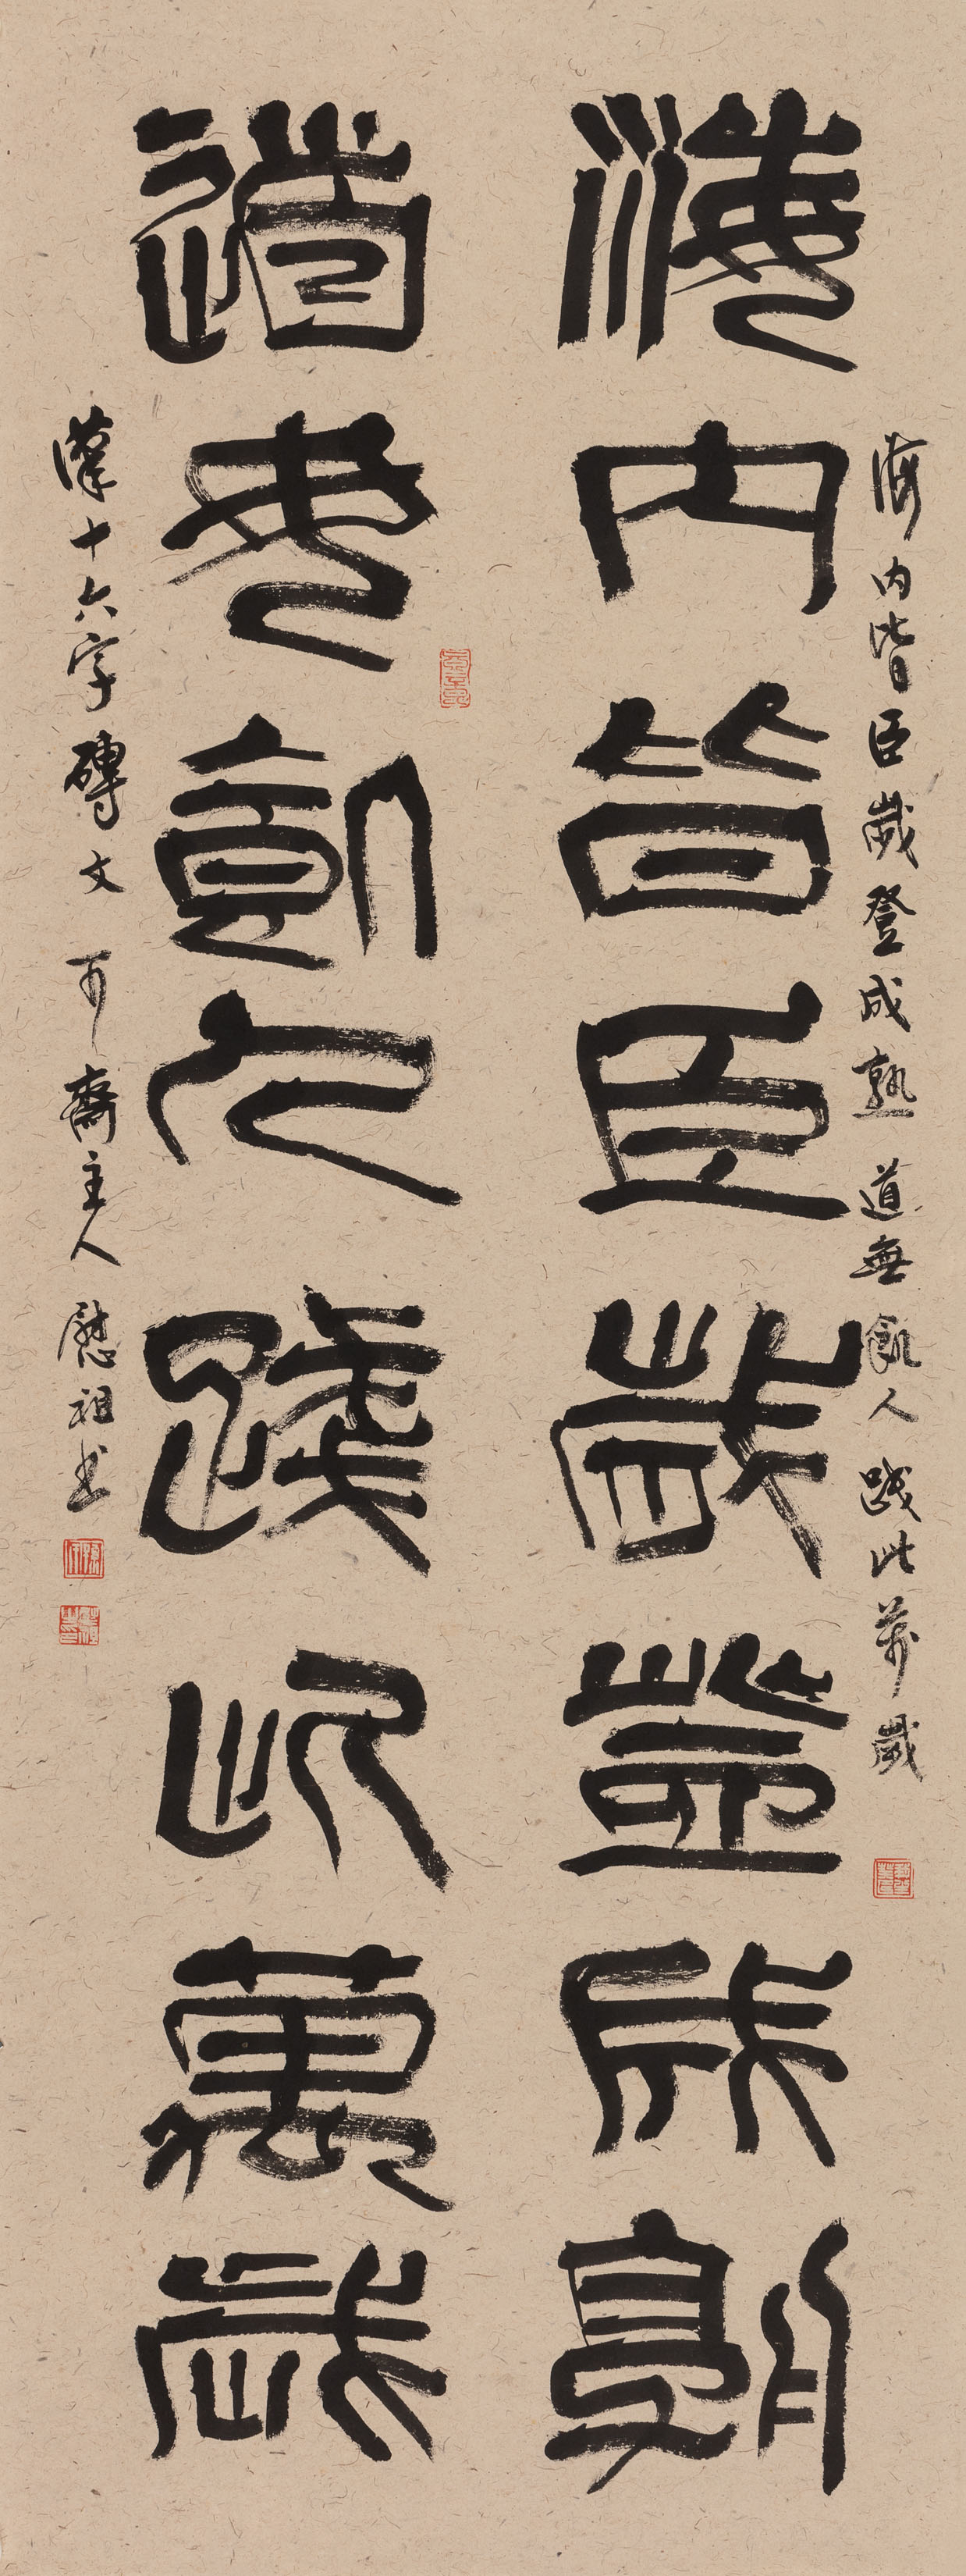 海内皆臣歲登成熟
道毋飢人踐此萬歲
海内皆臣歲登成熟 道無飢人踐此萬歲
漢十六字磚文 可齋主人 慰祖书